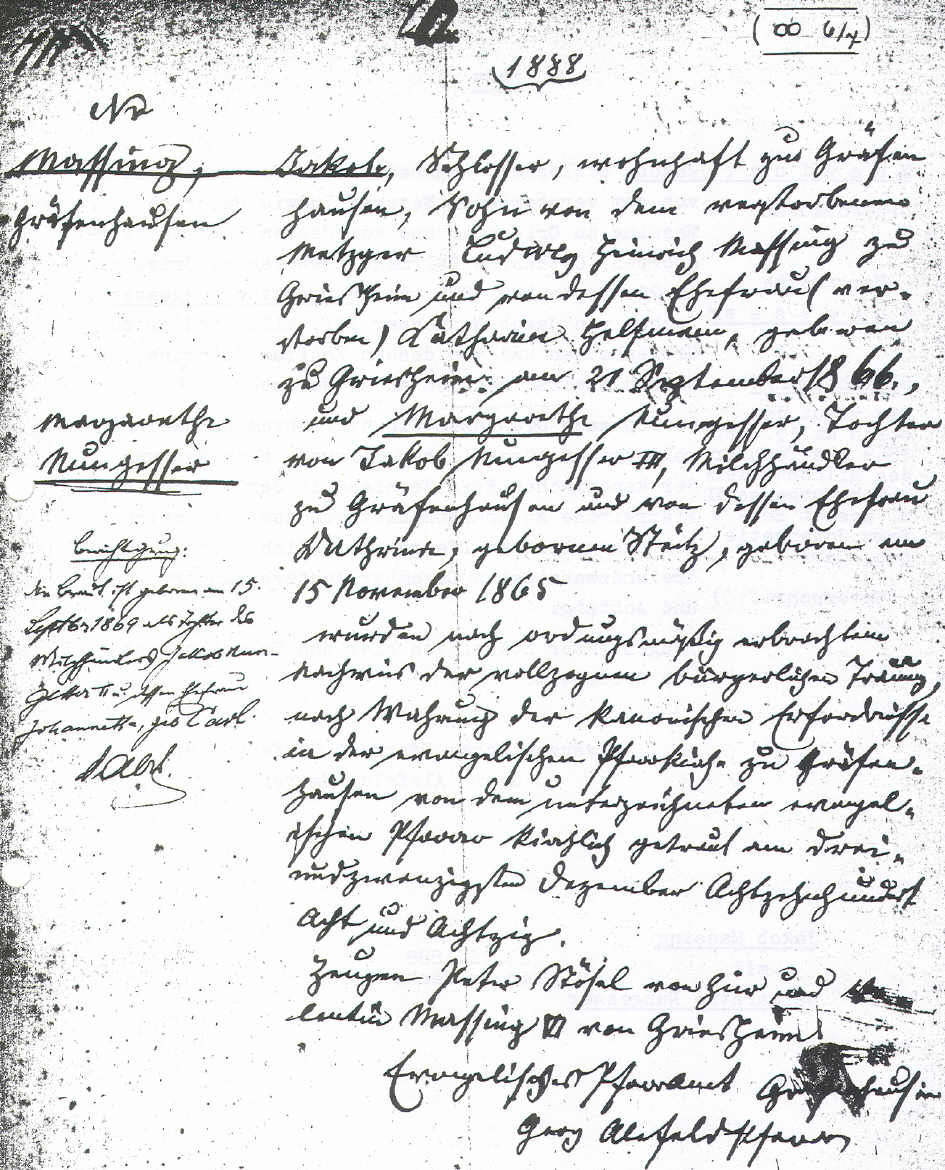 (∞ 6/4)
1888
No
Massing, Jakob, Schlosser, wohnhaft zu Gräfen
Gräfenhausen
hausen, Sohn von dem verstorbenen
Metzger Ludwig Heinrich Massing zu
Griesheim und von dessen Ehefrau (ver-
storben) Katharina Helfmann, geboren
zu Griesheim am 21 September 1866.,
Margarethe
Nungesser
und Margarethe Nungesser, Tochter
von Jakob Nungesser III, Milchhändler
zu Gräfenhausen und von dessen Ehefrau
Kathrine, geborenen Steitz, geboren am
15 November 1865
Berichtigung:
die Braut ist geboren am 15.
Septbr 1869 als Tochter des
Milchhändlers Jakob Nun-
gesser II u. dessen Ehefrau
Johannette, geb Carl.
wurden nach ordnungsmäßig erbrachtem
Nachweis der vollzogenen bürgerlichen Trauung,
nach Wahrung der kanonischen Erfordernisse
in der evangelischen Pfarrkirche zu Gräfen-
hausen von dem unterzeichneten evangel-
ischen Pfarrer kirchlich getraut am drei-
undzwanzigsten Dezember Achtzehnhundert
Acht und Achtzig.
Zeugen Peter Stösel von hier und
lentin Massing VI von Griesheim
Evangelisches Pfarramt Gräfenhausen
Georg Alefeld Pfarrer